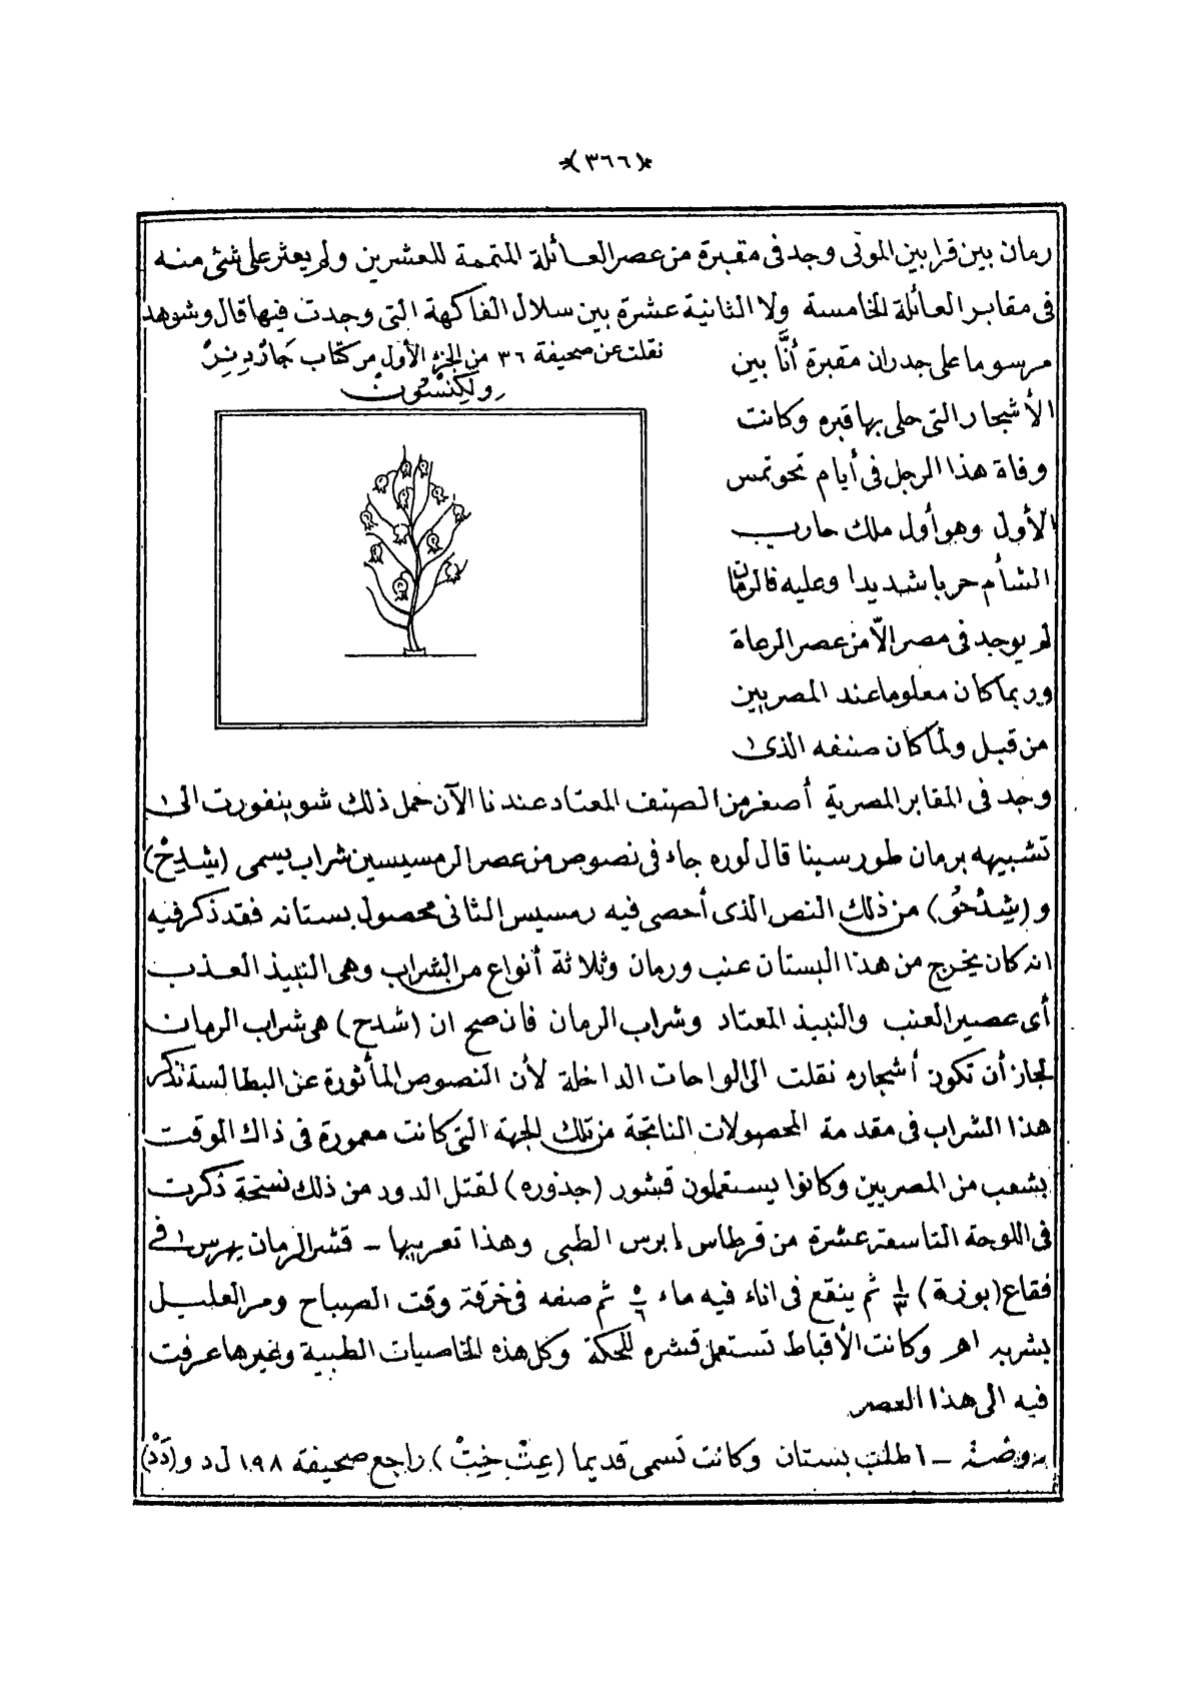 (٣٦٦)
رمان بين قرابين الموتى وجد فى مقبرة من عصر العائلة المتممة للعشرين ولم يعثر على شئ منه
فى مقابر العائلة الخامسة ولا الثانية عشرة بين سلال الفاكهة التى وجدت فيها قال وشوهد
مرسوما على جدران مقبرة أنَّا بين
الأشجار التى حلى بها قبره وكانت
وفاة هذا الرجل فى أيام تحوتمس
الأول وهو أول ملك حارب
الشأم حربا شديدا وعليه فالرمان
لم يوجد فى مصر الّا من عصر الرعاة
وربما كان معلوما عند المصريين
من قبل ولما كان صنفه الذى
نقلت عن صحيفة ٣٦ من الجزء الأول من كتاب جَارْدِنِرْ
ولكِنْسُونْ
وجد فى المقابر المصرية أصغر من الصنف المعتاد عندنا الآن حمل ذلك شوينفورت الى
تشبيهه برمان طور سينا قال لوره جاء فى نصوص من عصر الرمسيسين شراب يسمى (شِدِحْ)
و (شِدْحُو) من ذلك النص الذى أحصى فيه رمسيس الثانى محصول بستانه فقد ذكر فيه
انه كان يخرج من هذا البستان عنب ورمان وثلاثة أنواع من الشراب وهى النبيذ العذب
أى عصير العنب والنبيذ المعتاد وشراب الرمان فان صح ان (شدح) هى شراب الرمان
لجاز أن تكون أشجاره نقلت الى الواحات الداخلة لأن النصوص المأثورة عن البطالسة تذكر
هذا الشراب فى مقدمة المحصولات الناتجة من تلك الجهة التى كانت معمورة فى ذاك الوقت
بشعب من المصريين وكانوا يستعملون قشور (جذوره) لقتل الدود من ذلك نسخة ذكرت
فى اللوحة التاسعة عشرة من قرطاس ابرس الطبى وهذا تعريبها ــ قشر الرمان يهرس فى
فقاع (بوزة) ١/٣ ثم ينقع فى اناء فيه ماء ٥/٦ ثم صفه فى خرقة وقت الصباح ومر العليل
بشربه اهـ وكانت الأقباط تستعمل قشره للحكة وكل هذه الخاصيات الطبية وغيرها عرفت
فيه الى هذا العصر
روضة ــ اطلب بستان وكانت تسمى قديما (عِتْ خِتْ) راجع صحيفة ١٠٩٨ ل د و (دَدْ)